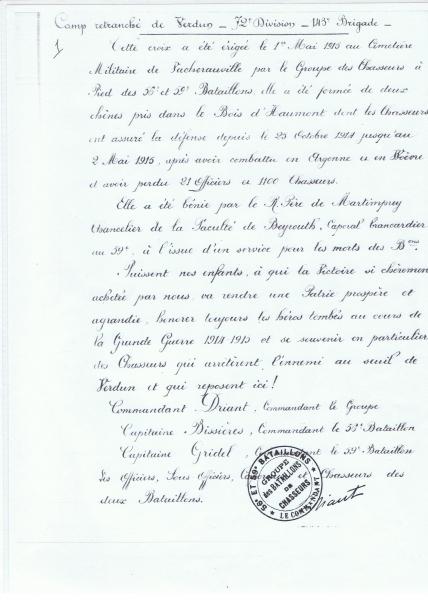 Camp retranché de Verdun - 72e Division - 143e Brigade -
1
Cette croix a été érigée le 1er Mai 1915 au Cimetière
Militaire de Vacherauville par le Groupe des Chasseurs à
Pied des 56e et 59e Bataillons, elle a été formée de deux
chênes pris dans le Bois d'Haumont dont les Chasseurs
ont assuré la défense depuis le 25 Octobre 1914 jusqu'au
2 Mai 1915, après avoir combattu en Argonne et en Woëvre
et avoir perdu 21 Officiers et 1100 Chasseurs.
Elle a été bénie par le R. Père de Martimprey
Chancelier de la Faculté de Beyrouth, Caporal brancardier
au 59e, à l'issue d'un service pour les morts des Bons.
Puissent nos enfants, à qui la Victoire si chèrement
achetée par nous, va rendre une Patrie prospère et
agrandie, honorer toujours les héros tombés au cours de
la Grande Guerre 1914 1915 et se souvenir en particulier
des Chasseurs qui arrêtèrent l'ennemi au seuil de
Verdun et qui reposent ici !
Commandant Driant, Commandant le Groupe
Capitaine Bissières, Commandant le 56e Bataillon
Capitaine Gridel, Commandant le 59e Bataillon
Les Officiers, Sous Officiers, et Chasseurs des
deux Bataillons.
56e ET 59e BATAILLONS
GROUPE
des BATAILLONS
DE
CHASSEURS
LE COMMANDANT
Driant